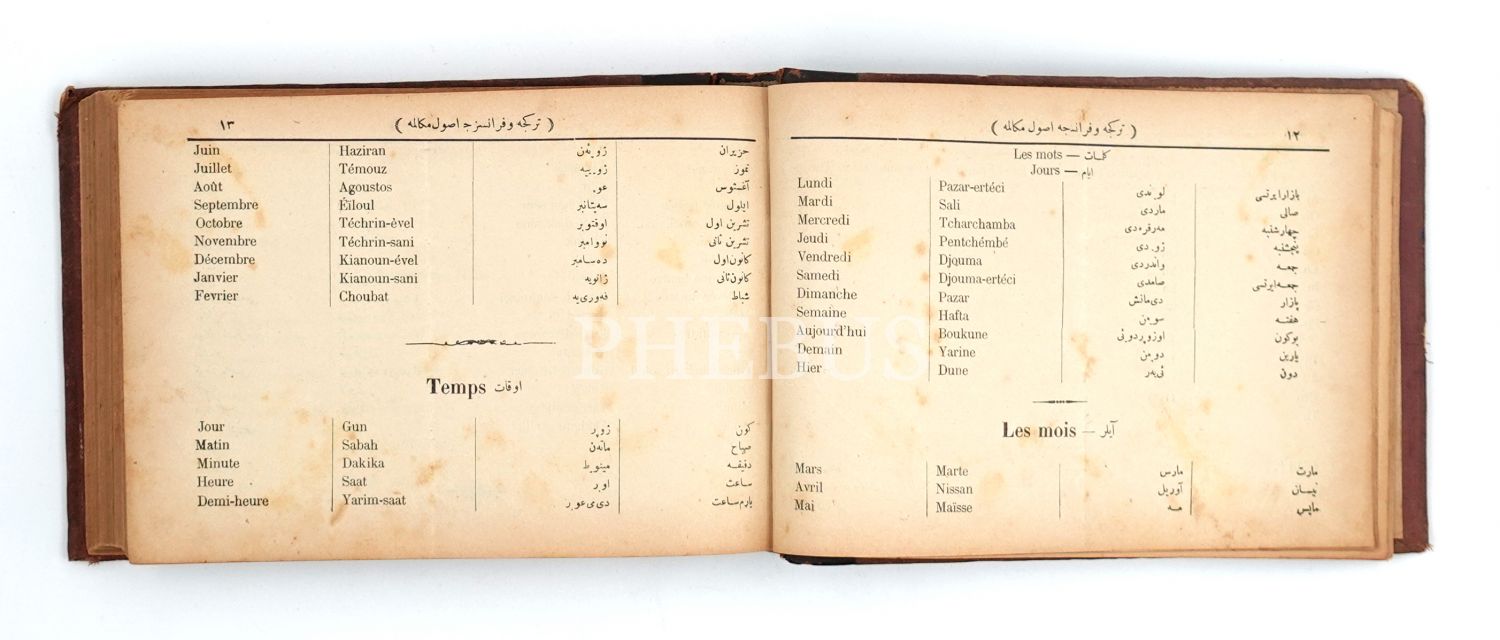 ( تركجه و فرانسزجه اصول مكالمه ) ١٢
Les mots — كلمات
Jours — ايام
Lundi Pazar-ertéci لوندى بازار ايرتسى
Mardi Sali ماردى صالى
Mercredi Tcharchamba مه‌رقره‌دى چهارشنبه
Jeudi Pentchémbé ژودى پنجشنبه
Vendredi Djouma واندردى جمعه
Samedi Djouma-ertéci صامدى جمعه‌ايرتسى
Dimanche Pazar دى‌مانش پازار
Semaine Hafta سومن هفته
Aujourd'hui Boukune بوكون
Demain Yarine دومن يارين
Hier Dune ئى‌يه‌ر دون
Les mois — آيلر
Mars Marte مارس مارت
Avril Nissan آوريل نيسان
Mai Maïsse مه مايس
( تركجه و فرانسزجه اصول مكالمه ) ١٣
Juin Haziran حزيران
Juillet Témouz تموز
Août Agoustos عو آغستوس
Septembre Éïloul سه‌پتانبر ايلول
Octobre Téchrin-èvel اوقتوبر تشرين اول
Novembre Téchrin-sani نووامبر تشرين ثانى
Décembre Kianoun-ével ده‌سامبر كانون اول
Janvier Kianoun-sani ژانويه كانون ثانى
Fevrier Choubat فه‌ورى‌يه شباط
Temps اوقات
Jour Gun ژور كون
Matin Sabah ماتن صباح
Minute Dakika مينوط دقيقه
Heure Saat اور ساعت
Demi-heure Yarim-saat يارم ساعت
PHEBUS